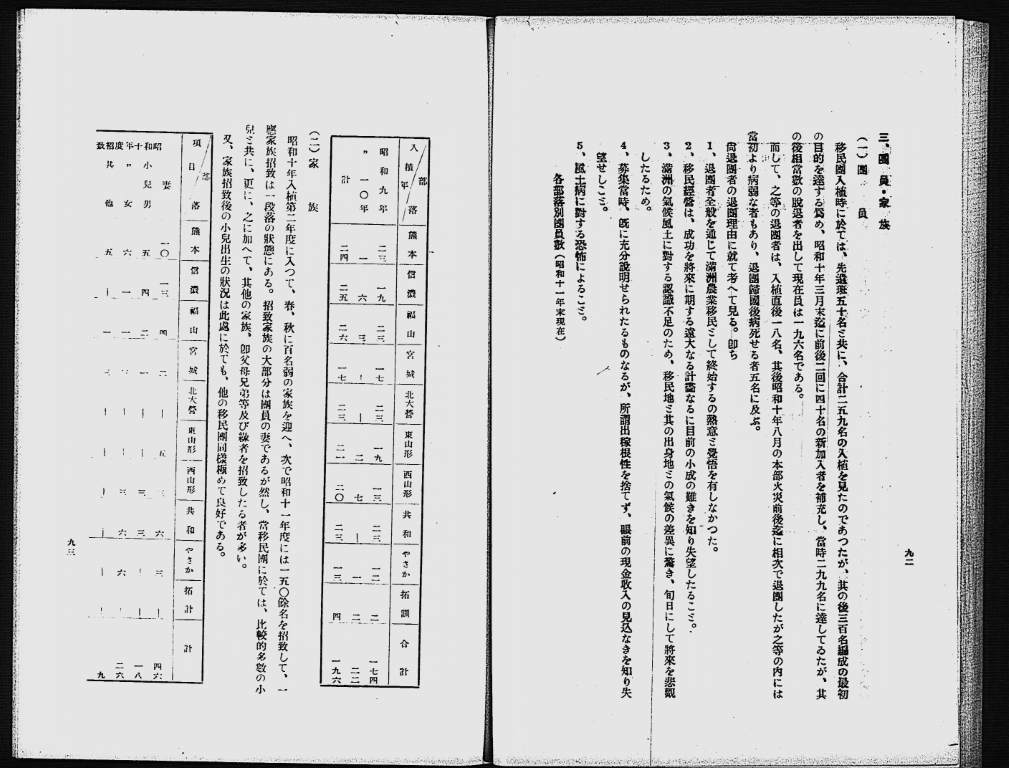 三、團員・家族
(一)團員
移民團入植時に於ては、先遣班五十名ミ共に、合計二五九名の入植を見たのであつたが、其の後三百名編成の最初
の目的を達する爲め、昭和十年三月末迄に前後二回に四十名の新加入者を補充し、當時二九九名に達してゐたが、其
の後相當數の脫退者を出して現在員は一九六名である。
而して、之等の退團者は、入植直後一八名、其後昭和十年八月の本部火災前後迄に相次で退團したが之等の內には
當初より病弱な者もあり、退團歸國後病死せる者五名に及ぶ。
尙退團者の退團理由に就て考へて見る。卽ち
1、退團者全般を通じて滿洲農業移民ミして終始するの熱意ミ覺悟を有しなかつた。
2、移民經營は、成功を將來に期する遠大なる計畫なるに目前の小成の難きを知り失望したるこミ。
3、滿洲の氣候風土に對する認識不足のため、移民地ミ其の出身地ミの氣候の差異に驚き、旬日にして將來を悲觀
したるため。
4、募集當時、旣に充分說明せられたるものなるが、所謂出稼根性を捨てず、眼前の現金收入の見込なきを知り失
望せしこミ。
5、風土病に對する恐怖によるこミ。
各部落別團員數(昭和十一年末現在)
九二
入植年 部落 熊本 信濃 福山 宮城 北大營 東山形 西山形 共和 やさか 拓訓 合計
昭和九年 二三 一九
〃一〇年
計 二四 二五 二六 一七 二三 二一 二〇 二三 一三 四 一九六
(二)家族
昭和十年入植第二年度に入つて、春、秋に百名弱の家族を迎へ、次で昭和十一年度には一五〇餘名を招致して、一
應家族招致は一段落の狀態にある。招致家族の大部分は團員の妻であるが然し、當移民團に於ては、比較的多數の小
兒ミ共に、更に、之に加へて、其他の家族、卽父母兄弟等及び緣者を招致したる者が多い。
又、家族招致後の小兒出生の狀況は此處に於ても、他の移民團同樣極めて良好である。
項目 部落 熊本 信濃 福山 宮城 北大營 東山形 西山形 共和 やさか 拓計 計
昭和十年度招致
妻 一〇 一三 四六
小兒男 五 四 一八
〃女 六 一 二六
其他 五 九
九三